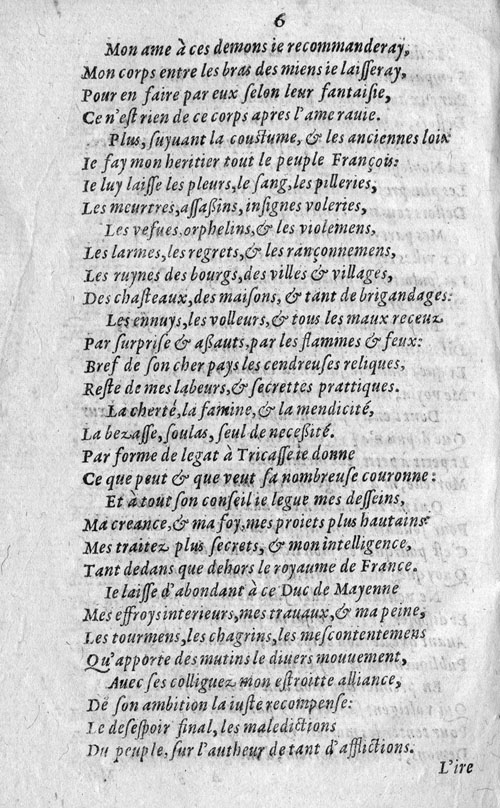 6
Mon ame à ces demons ie recommanderay,
Mon corps entre les bras des miens ie laisseray,
Pour en faire par eux selon leur fantaisie,
Ce n'est rien de ce corps apres l'ame rauie.
Plus, suyuant la coustume, & les anciennes loix
Ie fay mon heritier tout le peuple François:
Ie luy laisse les pleurs, le sang, les pilleries,
Les meurtres, assaßins, insignes voleries,
Les vefues, orphelins, & les violemens,
Les larmes, les regrets, & les rançonnemens,
Les ruynes des bourgs, des villes & villages,
Des chasteaux, des maisons, & tant de brigandages:
Les ennuys, les volleurs, & tous les maux receuz
Par surprise & aßauts, par les flammes & feux:
Bref de son cher pays les cendreuses reliques,
Reste de mes labeurs, & secrettes prattiques.
La cherté, la famine, & la mendicité,
La bezasse, soulas, seul de neceßité.
Par forme de legat à Tricasse ie donne
Ce que peut & que veut sa nombreuse couronne:
Et à tout son conseil ie legue mes desseins,
Ma creance, & ma foy, mes proiets plus hautains
Mes traitez plus secrets, & mon intelligence,
Tant dedans que dehors le royaume de France.
Ie laisse d'abondant à ce Duc de Mayenne
Mes effroys interieurs, mes trauaux, & ma peine,
Les tourmens, les chagrins, les mescontentemens
Qu'apporte des mutins le diuers mouuement,
Auec ses colliguez mon estroitte alliance,
De son ambition la iuste recompense:
Le desespoir final, les maledictions
Du peuple, sur l'autheur de tant d'afflictions.
L'ire